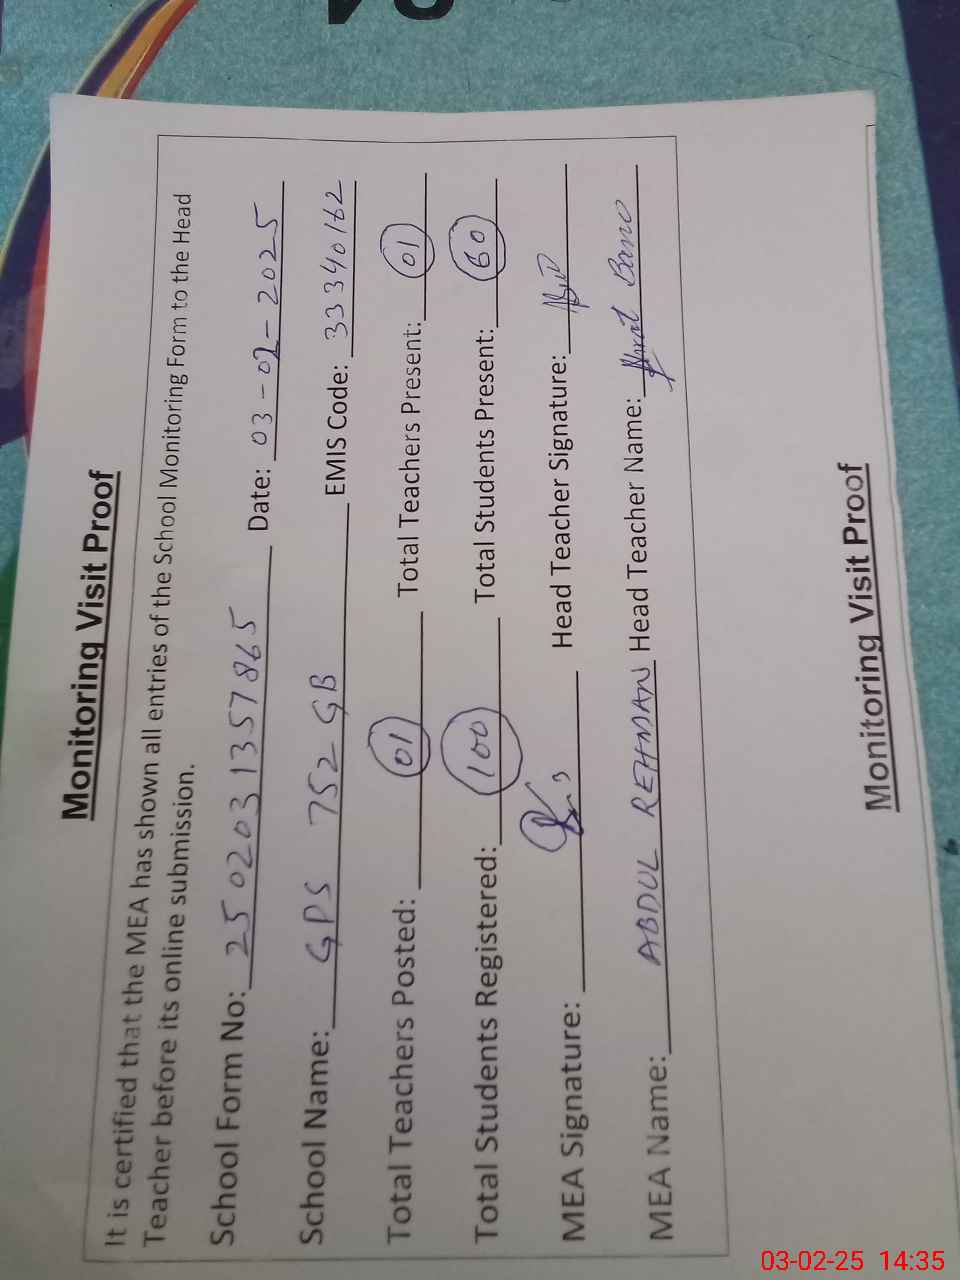 Monitoring Visit Proof
It is certified that the MEA has shown all entries of the School Monitoring Form to the Head
Teacher before its online submission.
School Form No: 2502031357865 Date: 03-02-2025
School Name: GPS 752 GB EMIS Code: 33340162
Total Teachers Posted: 01 Total Teachers Present: 01
Total Students Registered: 100 Total Students Present: 60
MEA Signature: Head Teacher Signature:
MEA Name: ABDUL REHMAN Head Teacher Name: Bano
Monitoring Visit Proof
03-02-25 14:35